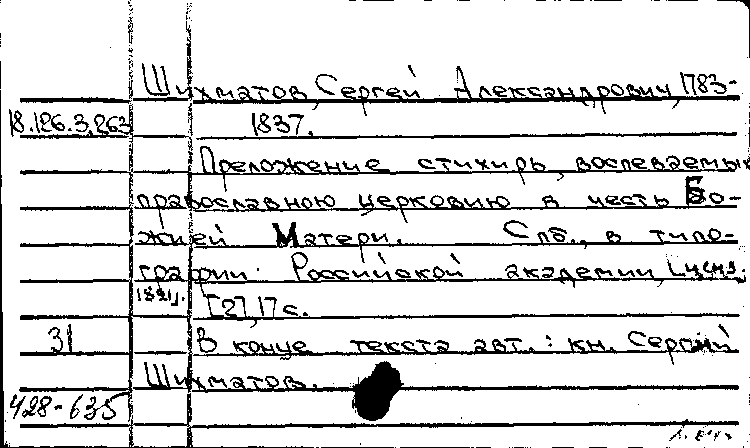 Шихматов, Сергей Александрович, 1783-
18.126.3.263 1837.
Преложение стихирь, воспеваемых
православною церковию в честь Бо-
жией Матери. Спб., в типо-
графии Российской академии,
[2], 17 с.
31 В конце текста авт.: кн. Сергий
Шихматов.
428-635